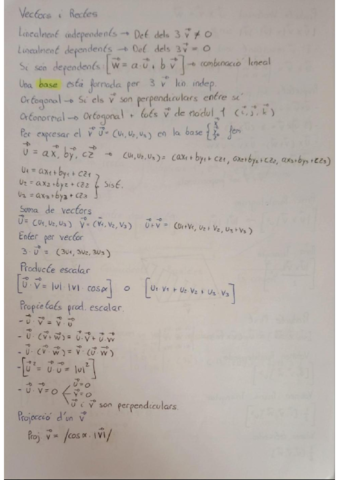 Vectors i Rectes
Linealment independents → Def. dels 3 v⃗ ≠ 0
Linealment dependents → Def. dels 3 v⃗ = 0
Si son dependents: [w⃗ = a u⃗ + b v⃗] → combinació lineal
Una base està formada per 3 v⃗ lin. indep.
Ortogonal → Si els v⃗ son perpendiculars entre si
Ortonormal → Ortogonal + tots v⃗ de mòdul 1
Per expresar el v⃗ u⃗ = (u₁, u₂, u₃) en la base fem
u⃗ = ax⃗, by⃗, cz⃗ → (u₁, u₂, u₃) = (ax₁+by₁+cz₁, ax₂+by₂+cz₂, ax₃+by₃+cz₃)
u₁ = ax₁+by₁+cz₁
u₂ = ax₂+by₂+cz₂ } Sist.
u₃ = ax₃+by₃+cz₃
Suma de vectors
u⃗ = (u₁, u₂, u₃) v⃗ = (v₁, v₂, v₃) u⃗+v⃗ = (u₁+v₁, u₂+v₂, u₃+v₃)
Enter per vector
3·u⃗ = (3u₁, 3u₂, 3u₃)
Producte escalar
[u⃗·v⃗ = |u|·|v|·cosα] o [u₁·v₁+u₂·v₂+u₃·v₃]
Propietats prod. escalar
- u⃗·v⃗ = v⃗·u⃗
- u⃗·(v⃗+w⃗) = u⃗·v⃗+u⃗·w⃗
- u⃗·(v⃗·w⃗) = v⃗·(u⃗·w⃗)
- [u⃗² = u⃗·u⃗ = |u|²]
- u⃗·v⃗ = 0
u⃗ = 0
v⃗ = 0
u⃗ i v⃗ son perpendiculars
Projecció d'un v⃗
Proj v⃗ = /cosα·|v⃗|/